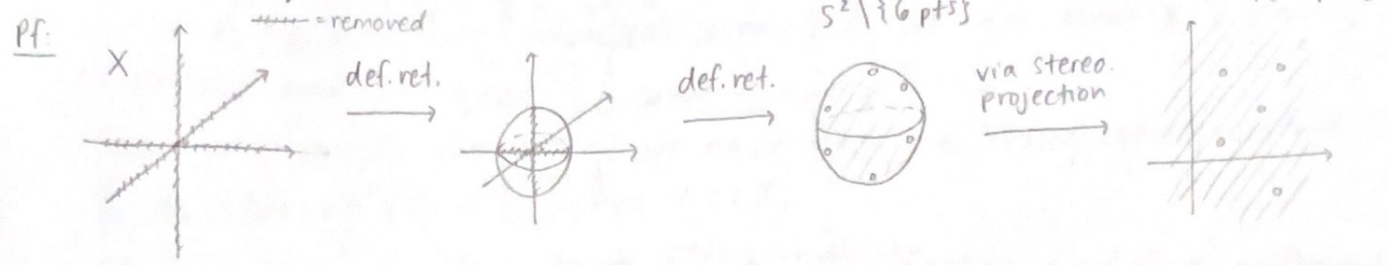 Pf:
X
= removed
def. ret.
def. ret.
S² \ {6 pts}
via stereo.
projection